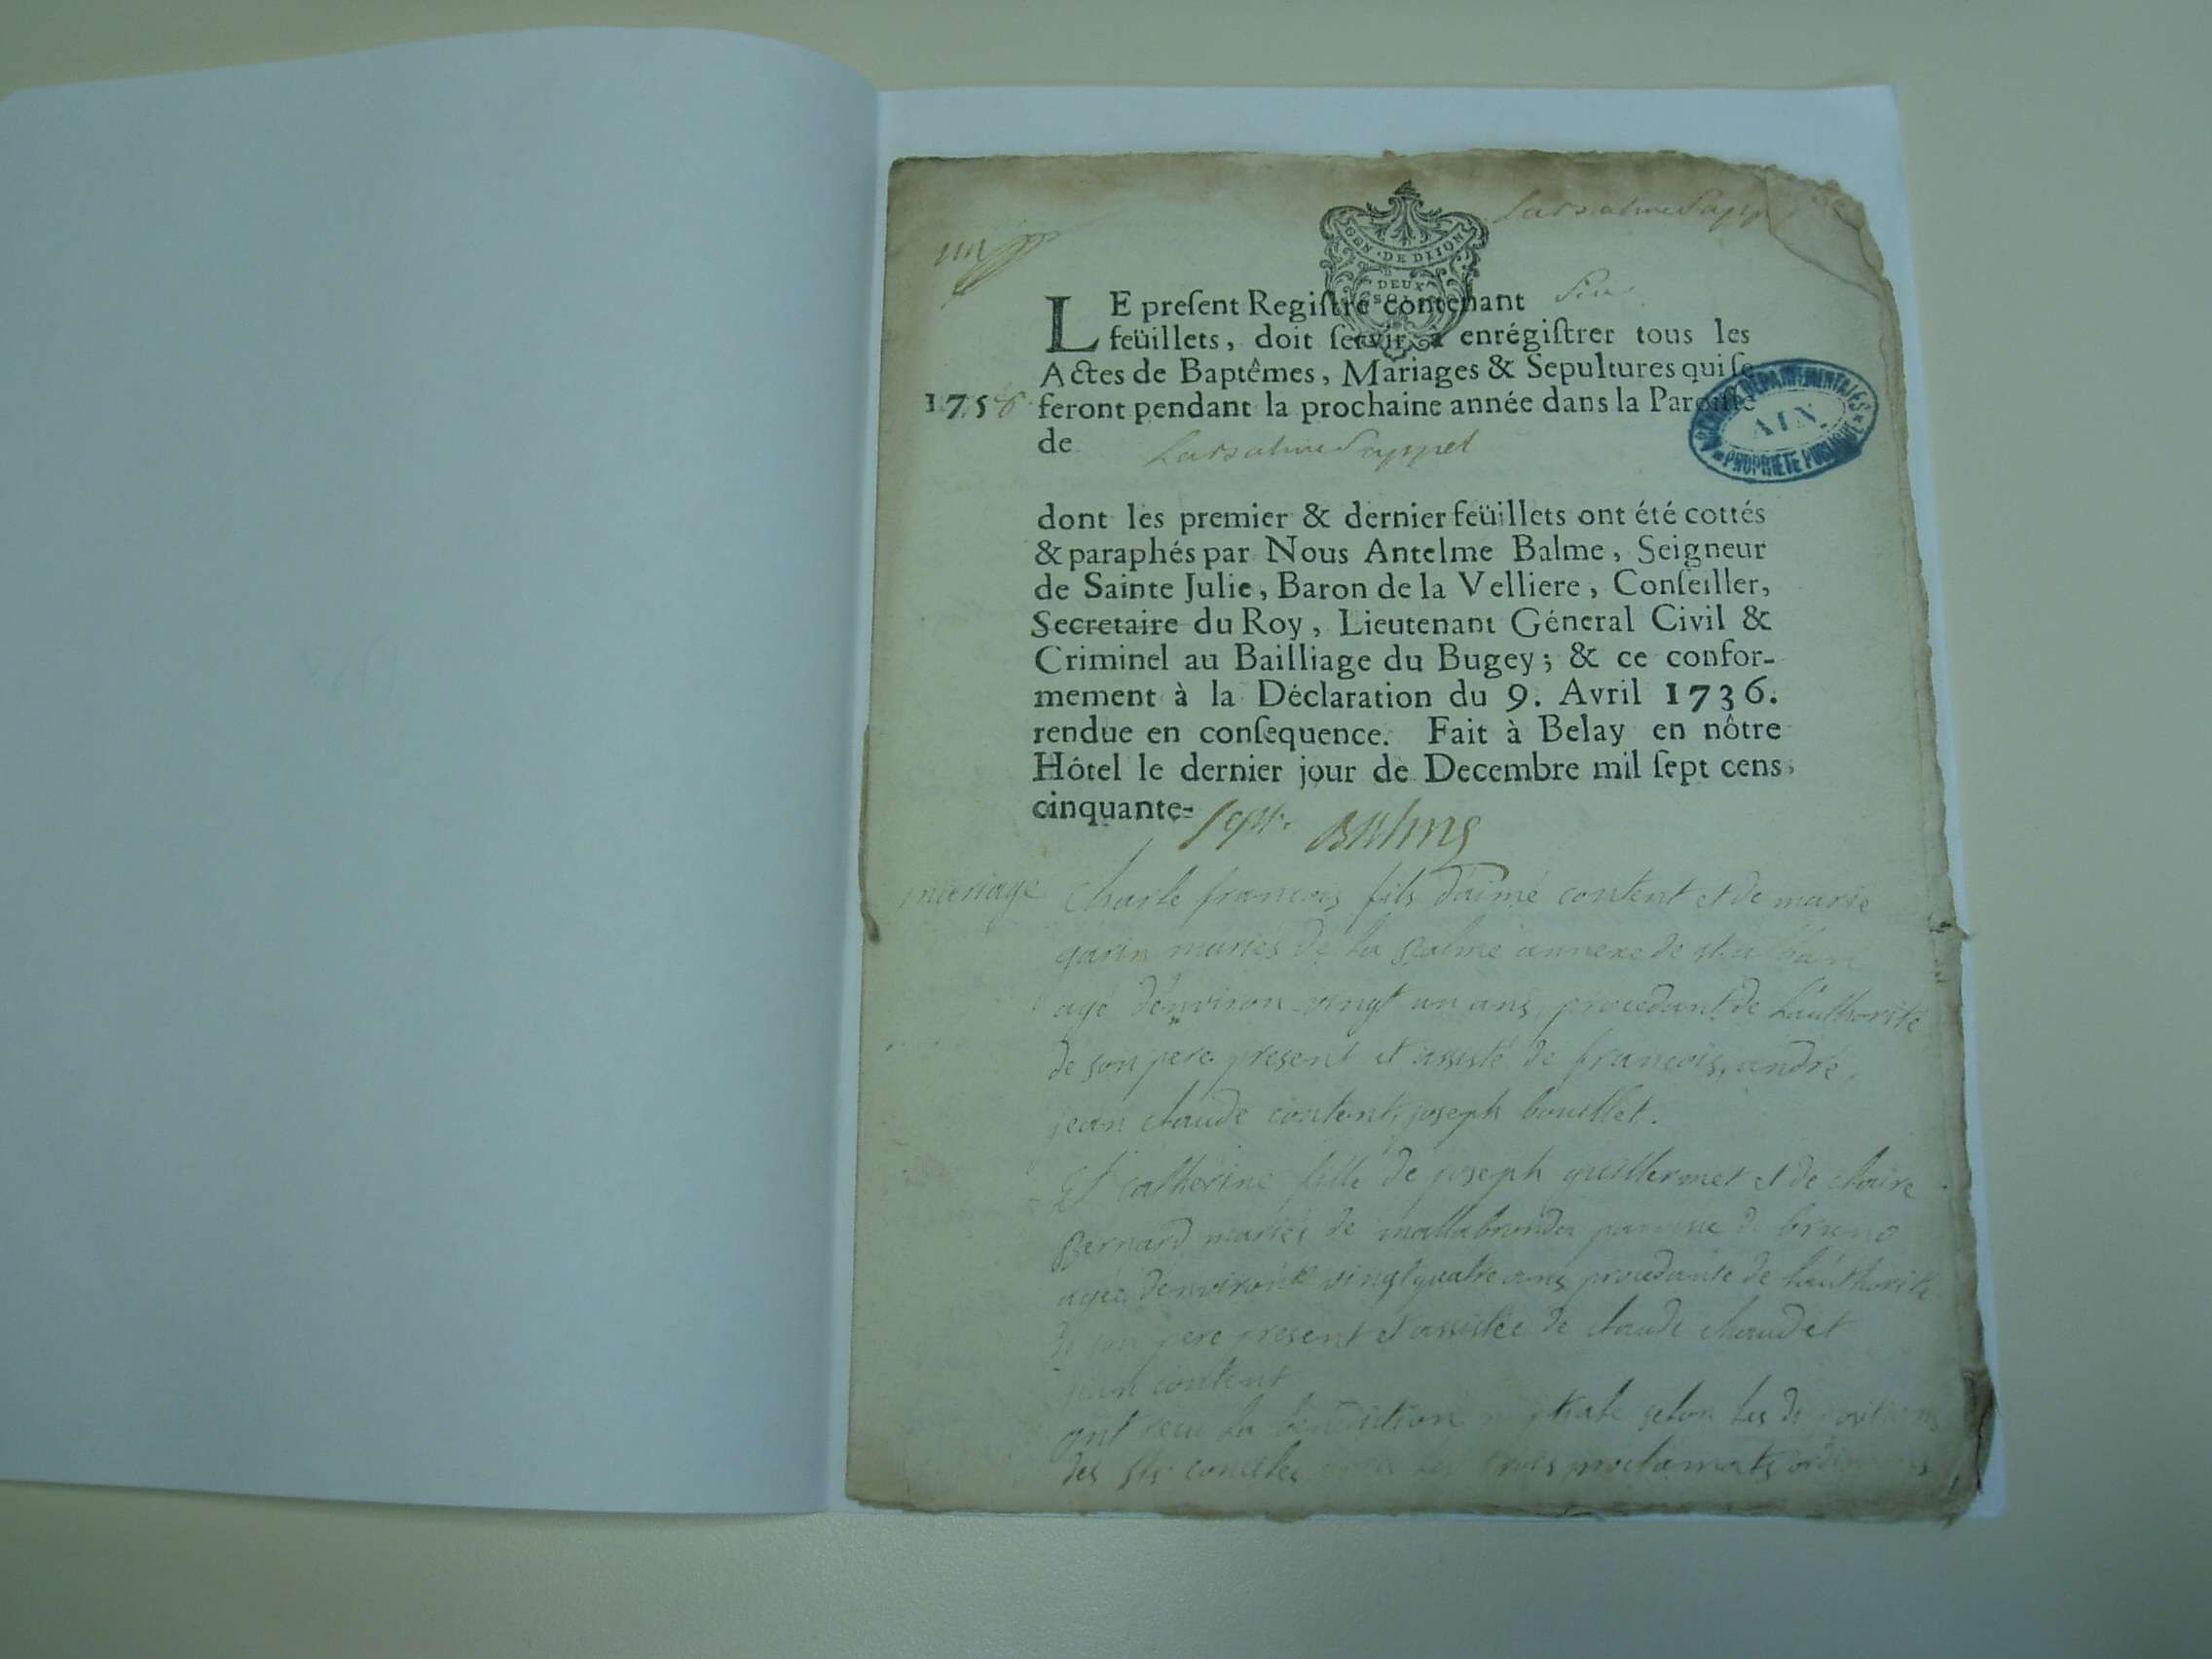 GEN · DE DIJON
DEUX
SOLS
LE preſent Regiſtre contenant Six
feüillets, doit ſervir à enrégiſtrer tous les
Actes de Baptêmes, Mariages & Sepultures qui ſe
1758 feront pendant la prochaine année dans la Paroiſſe
de
DEPARTEMENTALES
AIN
PROPRIETE PUBLIQUE
dont les premier & dernier feüillets ont été cottés
& paraphés par Nous Antelme Balme, Seigneur
de Sainte Julie, Baron de la Velliere, Conſeiller,
Secretaire du Roy, Lieutenant Géneral Civil &
Criminel au Bailliage du Bugey; & ce confor-
mement à la Déclaration du 9. Avril 1736.
rendue en conſequence. Fait à Belay en nôtre
Hôtel le dernier jour de Decembre mil ſept cens
cinquante- sept. Balme
mariage Charle francois fils d'aimé content et de marie
garin mariés de la Balme annexe de
agé d'environ vingt un ans, procedant de l'authorité
de son pere present et assisté de francois, andré,
jean claude content, joseph bouillet.
Et catherine fille de joseph guillermet et de claire
Bernard mariés de mallabronde paroisse de
agée d'environ vingt quatre ans procedante de l'authorité
de son pere present et assistée de claude chaudet
jean content
ont recu la benediction selon les dispositions
des sts conciles trois proclamats